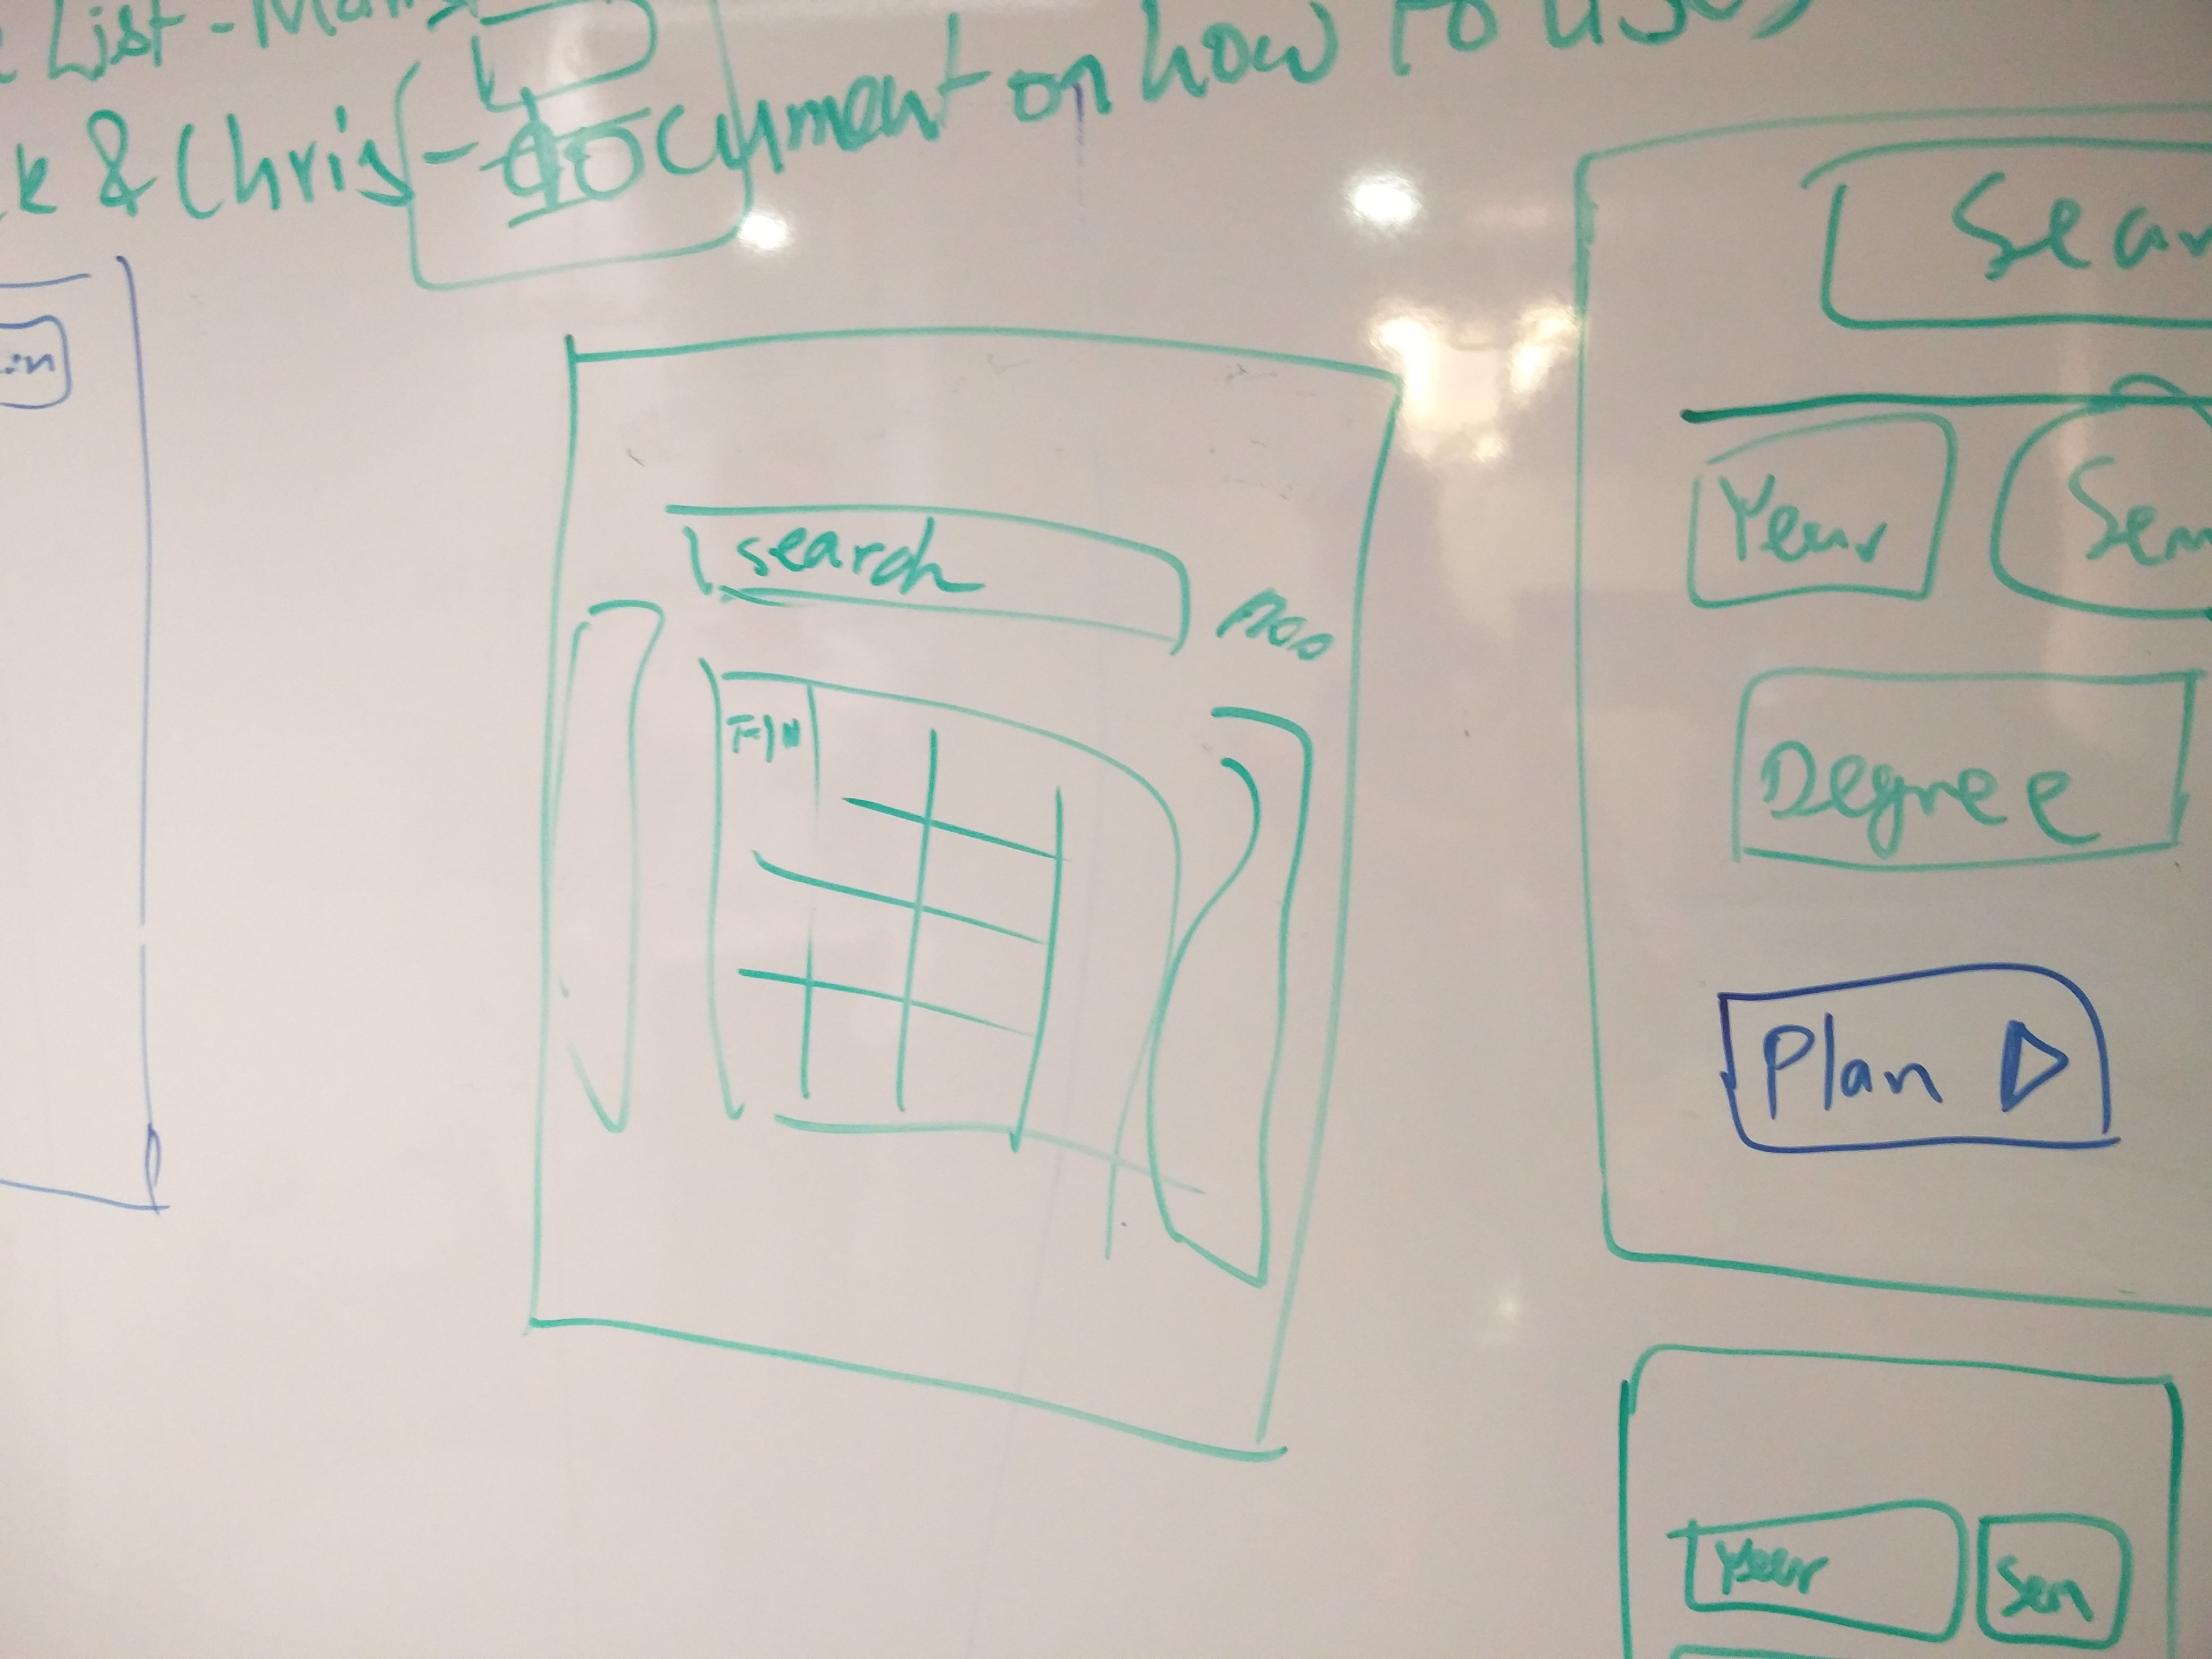 List -
k & Chris - document on how to use
in
Sear
search
Year
Sem
FIN
Degree
Plan
Year
Sem